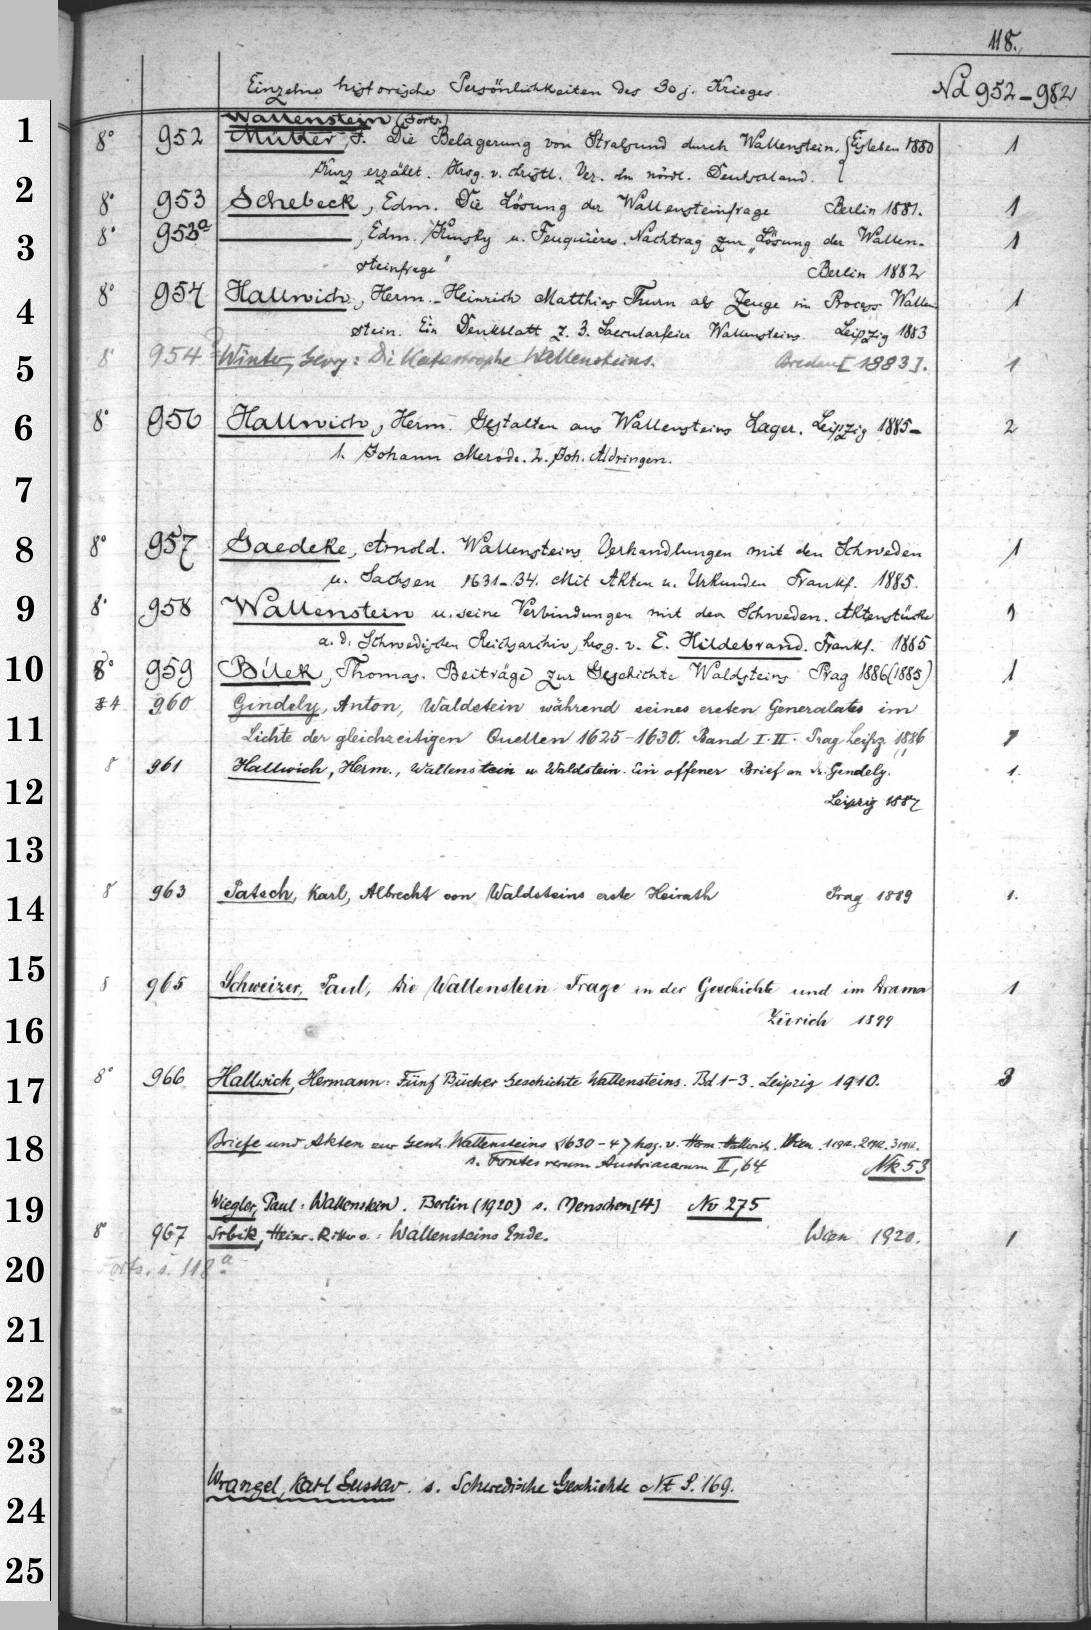 118.
Einzelne historische Persönlichkeiten des 30j. Krieges.
Nd 952-982
1
Wallenstein (Forts.)
8° 952 Müller, F. Die Belagerung von Stralsund durch Wallenstein. Eisleben 1880 1
Kurz erzält. Hrsg. v. christl. Ver. im nördl. Deutschland.
2
8° 953 Schebeck, Edm. Die Lösung der Wallensteinfrage Berlin 1881. 1
8° 953a , Edm. Kinsky u. Feuquières. Nachtrag zur „Lösung der Wallen- 1
3
steinfrage" Berlin 1882
8° 954 Hallwich, Herm. Heinrich Matthias Thurn als Zeuge im Process Wallen 1
4
stein. Ein Denkblatt z. 3. Saecularfeier Wallensteins. Leipzig 1883
8° 954a Winter, Georg: Die Katastrophe Wallensteins. Breslau [1883]. 1
5
8° 956 Hallwich, Herm. Gestalten aus Wallensteins Lager. Leipzig 1885- 2
6
1. Johann Merode. 2. Joh. Aldringen.
7
8° 957 Gaedeke, Arnold. Wallensteins Verhandlungen mit den Schweden 1
8
u. Sachsen 1631-34. Mit Akten u. Urkunden Frankf. 1885.
8° 958 Wallenstein u. seine Verbindungen mit den Schweden. Aktenstücke 1
9
a. d. Schwedischen Reichsarchiv, hrsg. v. E. Hildebrand. Frankf. 1885
8° 959 Bílek, Thomas. Beiträge zur Geschichte Waldsteins Prag 1886 (1885) 1
10
4 960 Gindely, Anton, Waldstein während seines ersten Generalates im
Lichte der gleichzeitigen Quellen 1625-1630. Band I. II. Prag Leipz. 1886
11
8 961 Hallwich, Herm., Wallenstein u. Waldstein. Ein offener Brief an Dr. Gindely. 1.
12
Leipzig 1887
13
8 963 Patsch, Karl, Albrecht von Waldsteins erste Heirath Prag 1889 1.
14
15
8 965 Schweizer, Paul, Die Wallenstein Frage in der Geschichte und im Drama 1
Zürich 1899
16
8° 966 Hallwich, Hermann: Fünf Bücher Geschichte Wallensteins. Bd 1-3. Leipzig 1910. 3
17
Briefe und Akten zur Gesch. Wallensteins (1630-4) hsg. v. Herm. Hallwich. Wien. 1912. 2 1912. 3 1912.
18
s. Fontes rerum Austriacarum II, 64 Nk 53
Wiegler, Paul: Wallenstein. Berlin (1920) s. Menschen [4] No 275
19
8° 967 Srbik, Heinr. Ritter v.: Wallensteins Ende. Wien 1920. 1
Forts. s. 118a
20
21
22
23
Wrangel, Karl Gustav s. Schwedische Geschichte Nt S. 169.
24
25